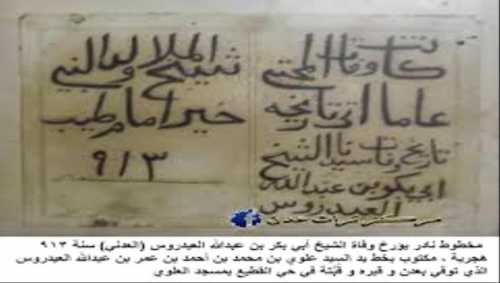 كانت وفاة المجتبى
شيخ الملا النبي
عاما اتى تاريخه
خير امام طيب
تاريخ وفات سيدنا الشيخ
ابي بكر بن عبدالله
العيدروس
٩١٣
مركز تراث عدن
مخطوط نادر يورخ وفاة الشيخ أبي بكر بن عبدالله العيدروس (العدني) سنة ٩١٣
هجرية ، مكتوب بخط يد السيد علوي بن محمد بن أحمد بن عمر بن عبدالله العيدروس
الذي توفي بعدن و قبره و قبّته في حي القطيع بمسجد العلوي